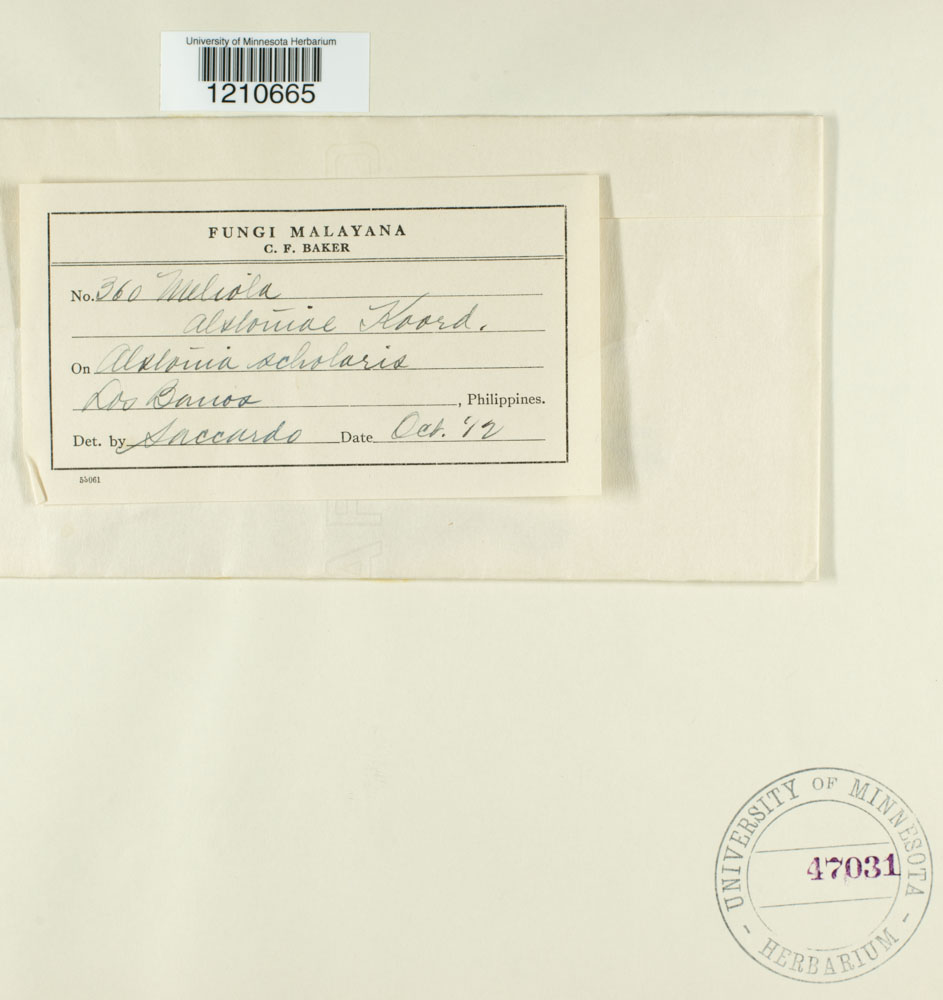 University of Minnesota Herbarium
1210665
FUNGI MALAYANA
C. F. BAKER
No. 360 Meliola
Alstoniae Koord.
On Alstonia scholaris
Los Banos, Philippines.
Det. by Saccardo Date Oct. '12
55061
UNIVERSITY OF MINNESOTA
47031
- HERBARIUM -